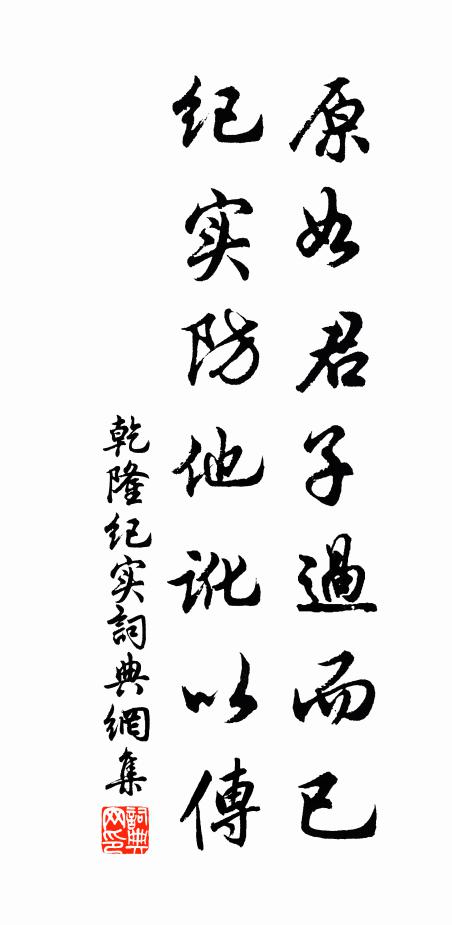 原如君子過而已
纪实防他訛以傳
乾隆纪实詞典網集
詞典网印